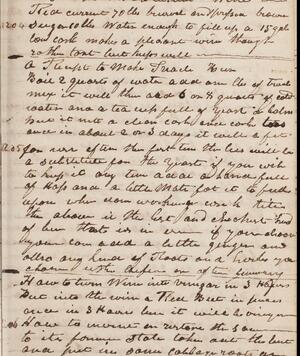 Red current to the pound and
Sugar to the Water enough to fill up a 15 gal
low cask make a pleasant wine
rather tart but keeps well
A Receipt to Make Treacle Beer
Boil 2 quarts of water add one lb of treacle
mix it well then add 6 or 8 quarts of cold
water and a tea cup full of yeast or balm
put it into a clean cask and cover
once in about 2 or 3 days it will be fit
for use after the first time the lees will be
a substitute for the yeast if you wish
to keep it any time add a handfull
of Hops and a little Malt for it to feed
upon when done working cork it tite
the above is the best and cheapest kind
of beer that is in use if you choose
you can add a little ginger and
allso any kind of Roots and herbs you
choose
How to turn Wine into vinegar in 3 Hours
Put into the wine a Red Beet in pieces
once in 3 Hours but it will be vinegar
How to restore the same
to its former State take out the beet
and put in some Cabbage roots